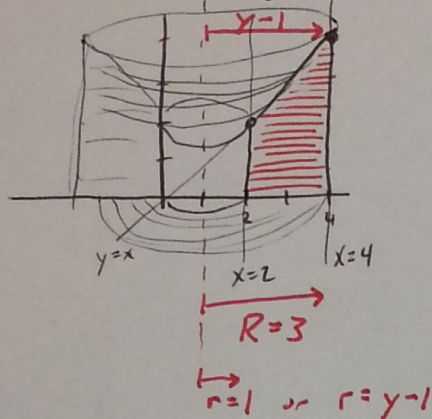 y-1
2
4
y=x
x=2
x=4
R=3
r=1 or r=y-1